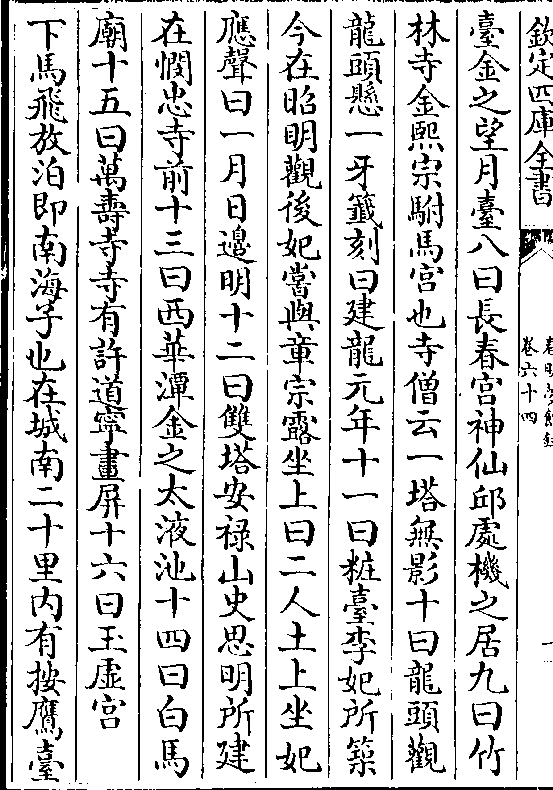 欽定四庫全書
春明夢餘錄
卷六十四
一
臺金之望月臺八曰長春宮神仙邱處機之居九曰竹
林寺金熙宗駙馬宮也寺僧云一塔無影十曰龍頭觀
龍頭懸一牙籤刻曰建龍元年十一曰粧臺李妃所築
今在昭明觀後妃嘗與章宗露坐上曰二人土上坐妃
應聲曰一月日邉明十二曰雙塔安祿山史思明所建
在憫忠寺前十三曰西華潭金之太液池十四曰白馬
廟十五曰萬壽寺寺有許道寧畫屏十六曰玉虛宮
下馬飛放泊即南海子也在城南二十里内有按鷹臺